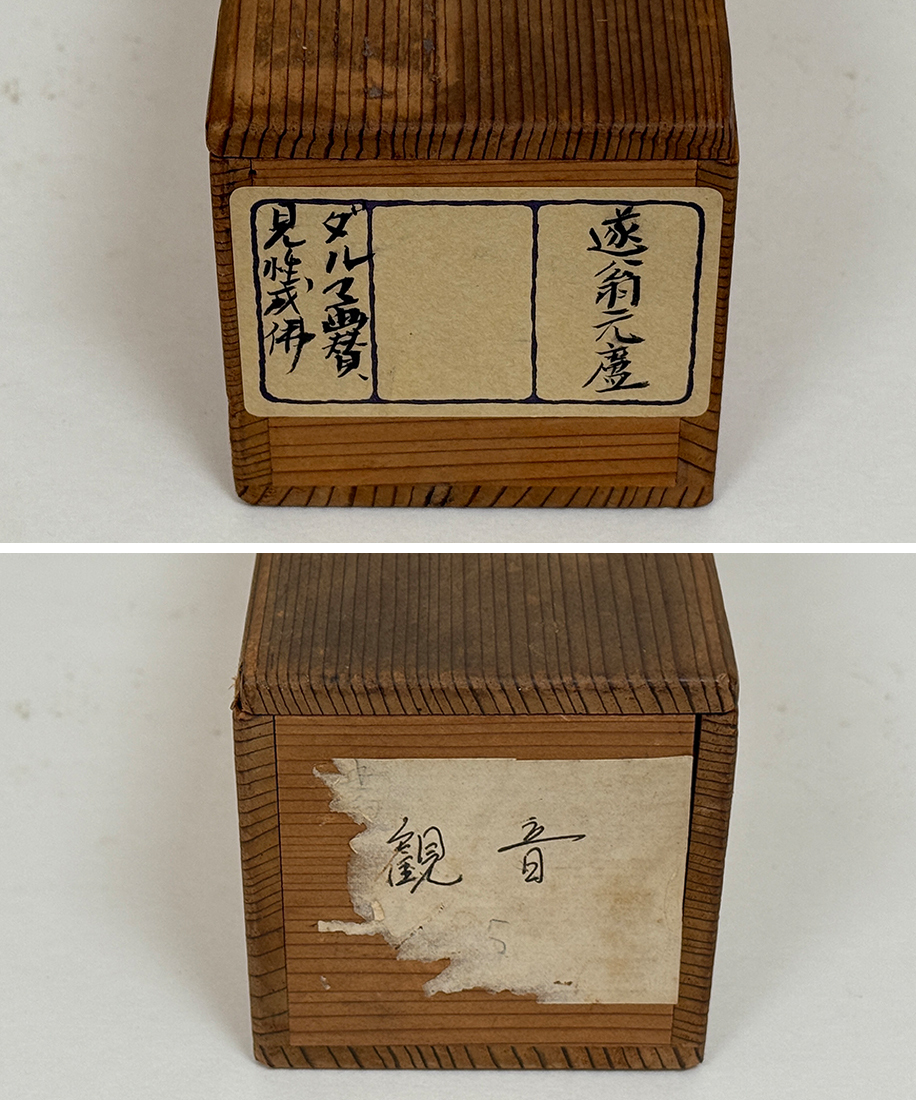 遂翁元盧
ダルマ画賛
見性成佛
観音
5